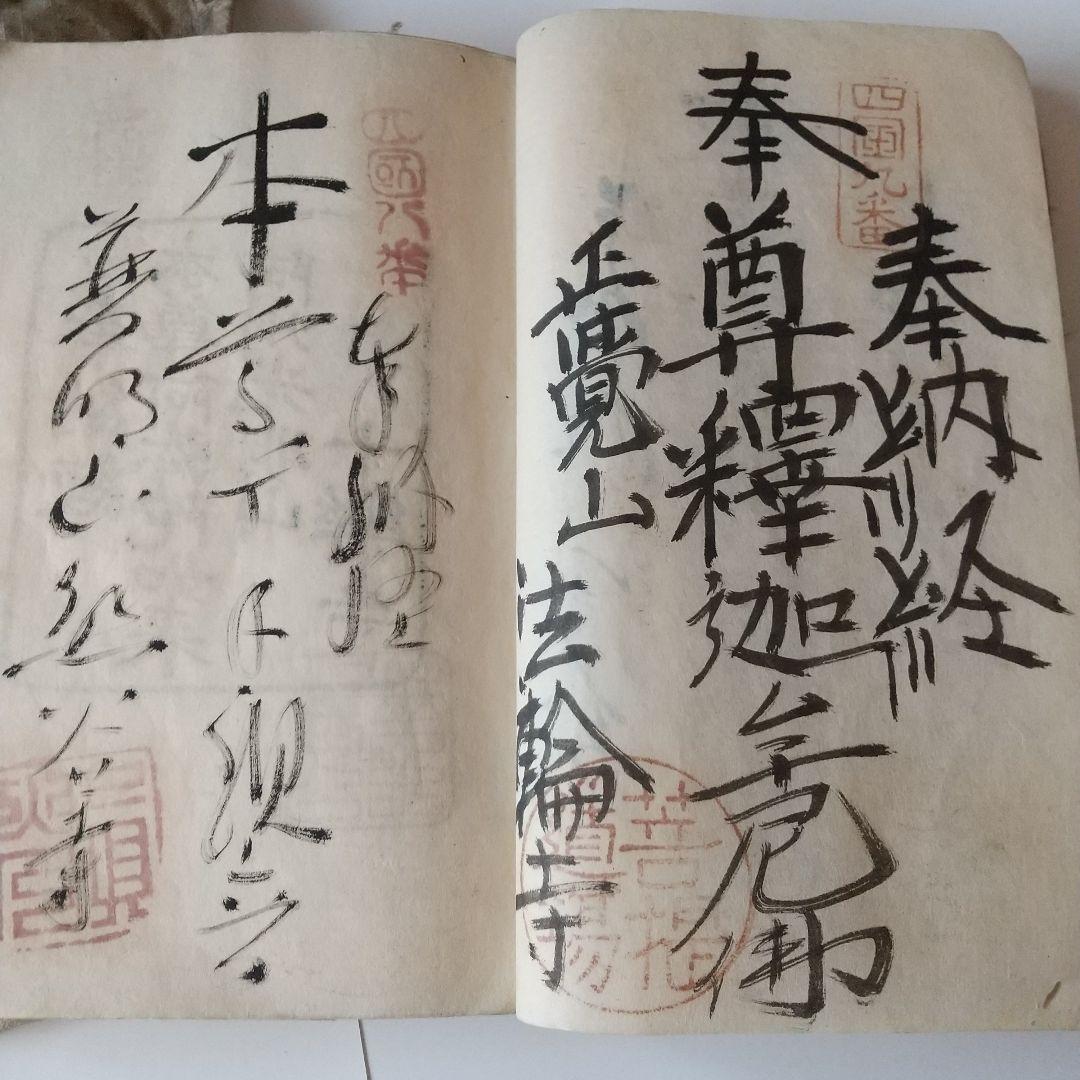 四國九番
奉納経
奉尊釋迦牟尼佛
正覺山 法輪寺
菩提道場
四國八番
奉納経
本尊千手観音
普明山熊谷寺